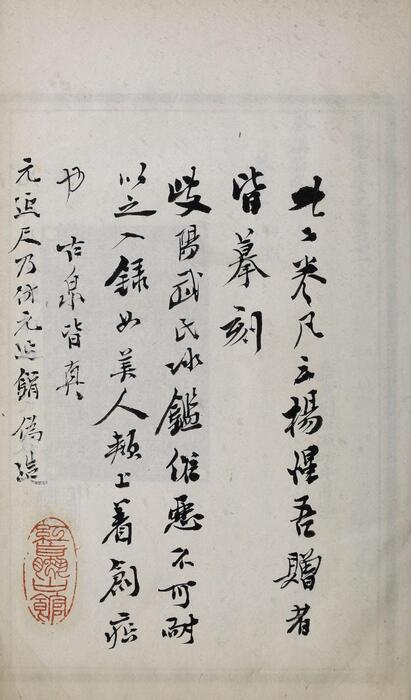 此二卷凡云楊惺吾贈者
皆摹刻
歧陽武氏冰鑑俗惡不可耐
以之入錄如美人頰上着創痂
也 古泉皆真
元延尺乃仿元延鋗偽造